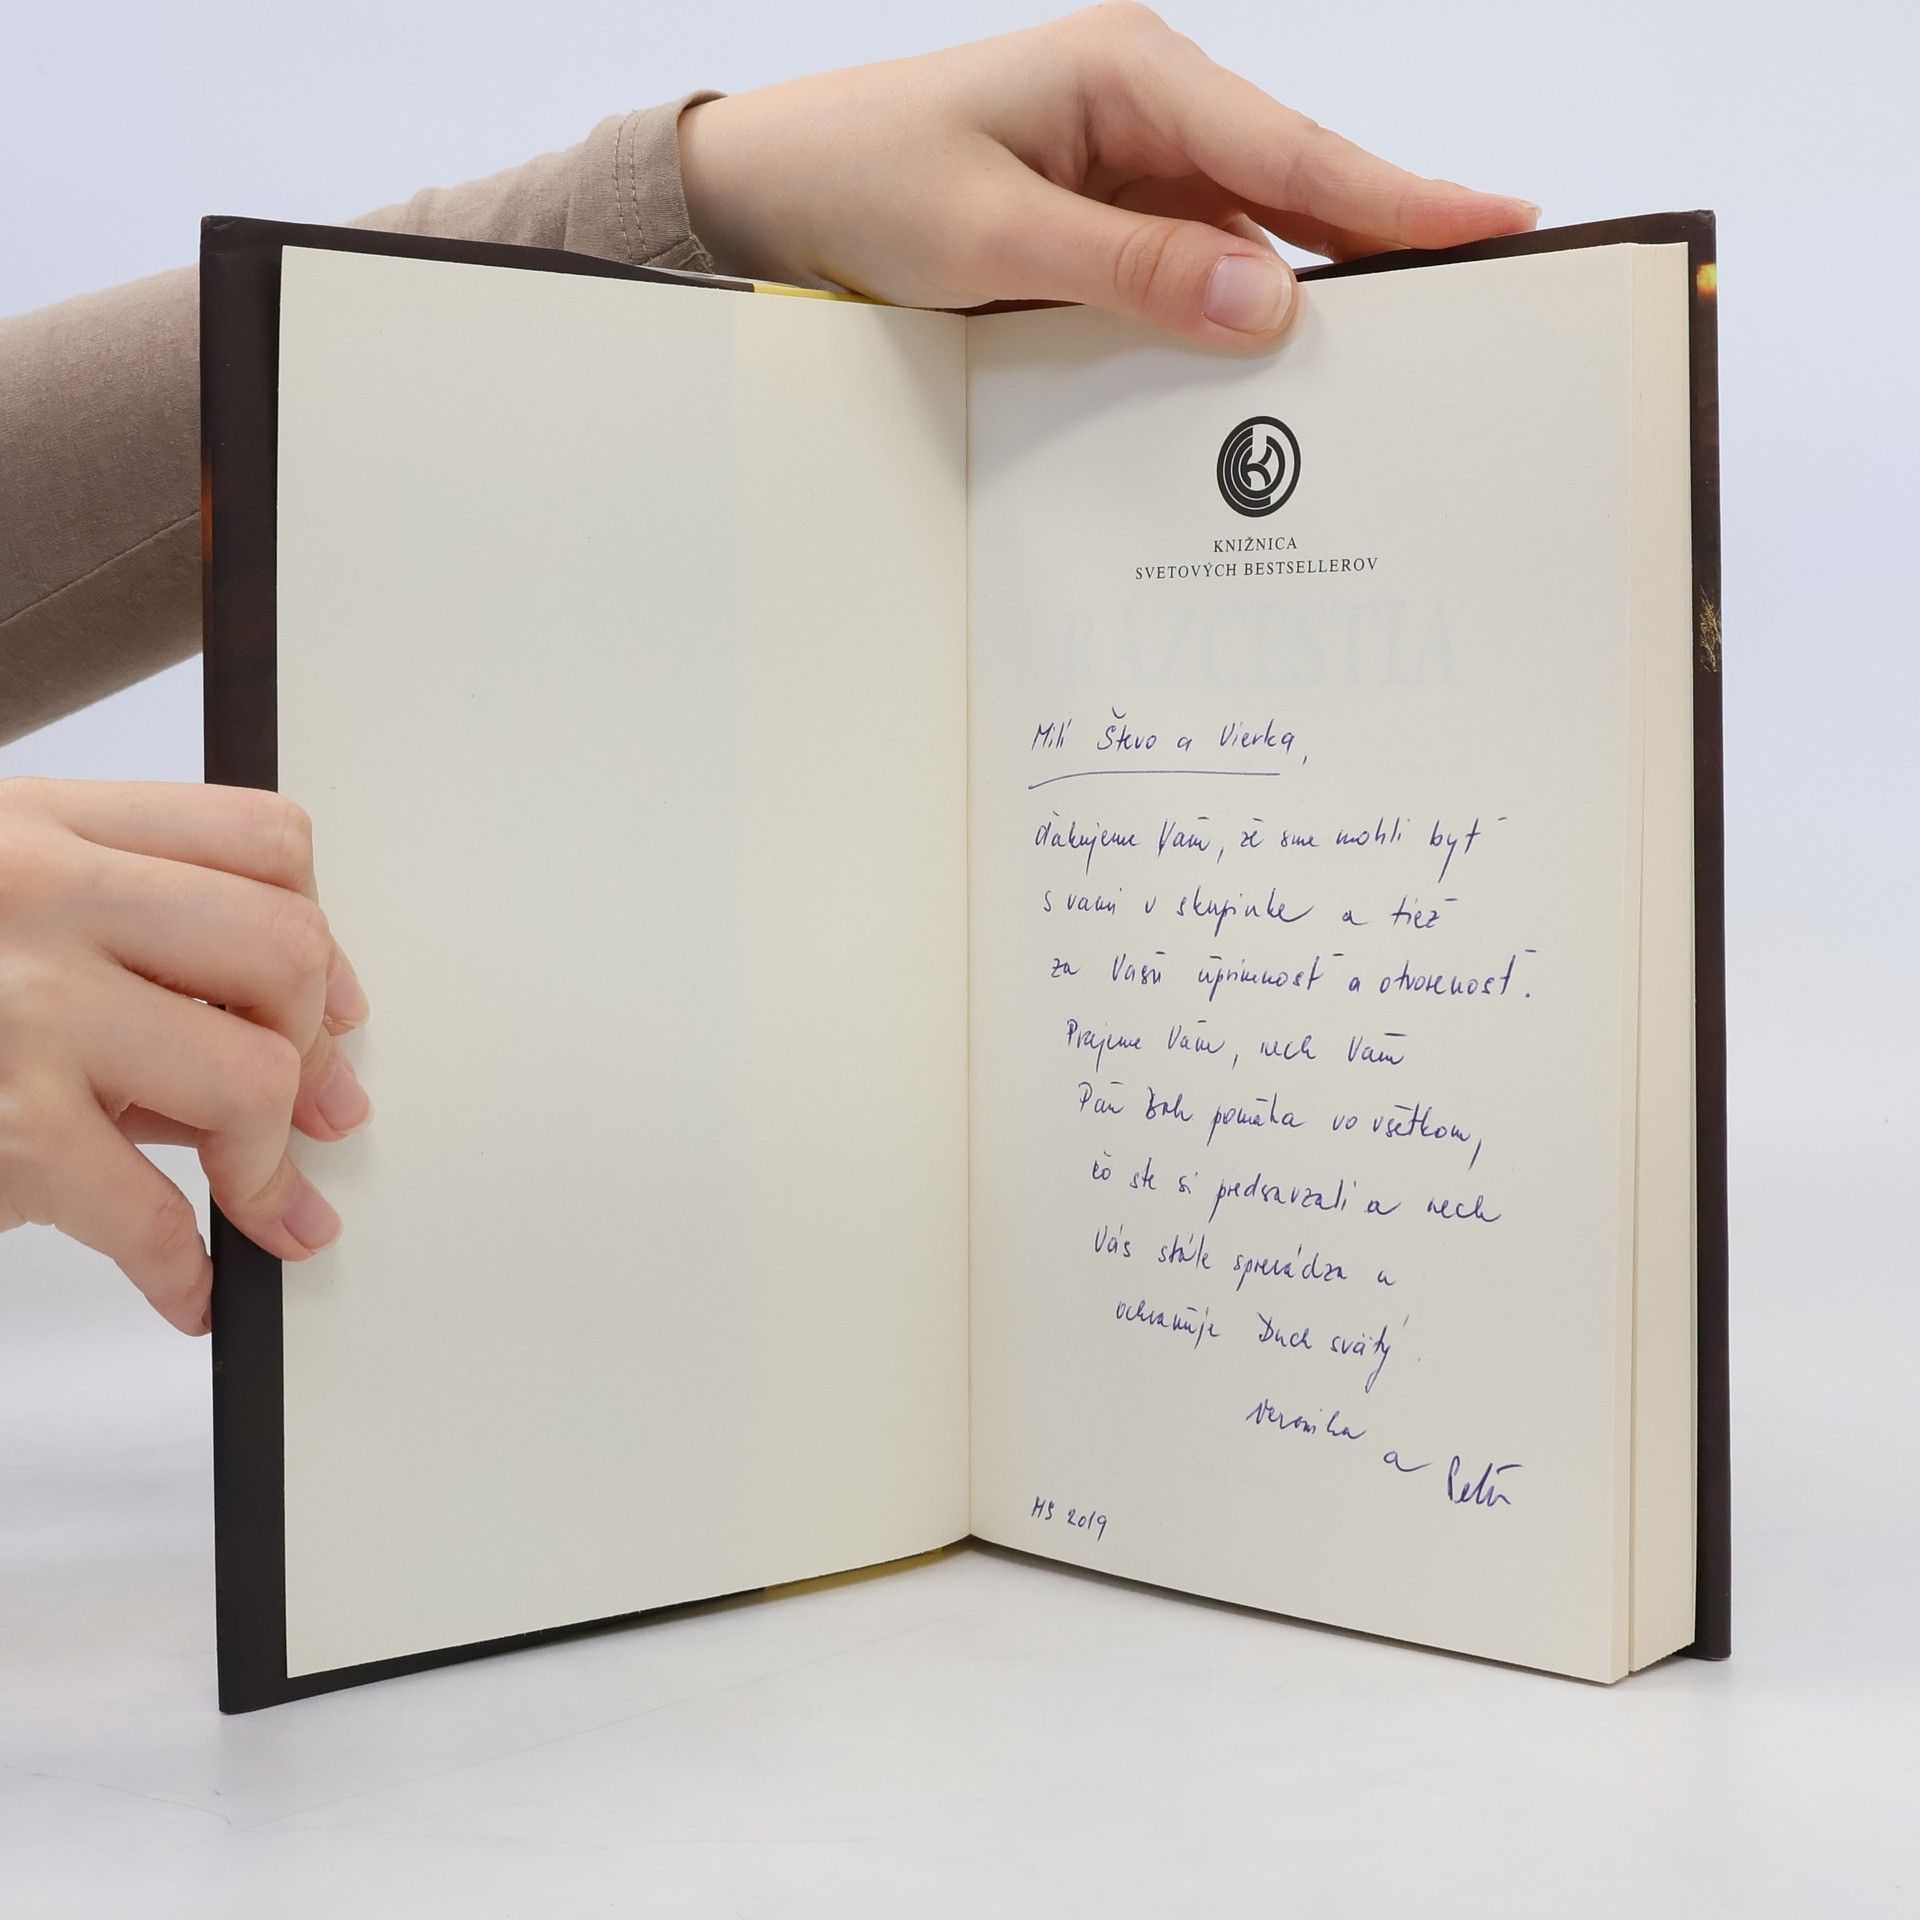 KNIŽNICA
SVETOVÝCH BESTSELLEROV
RÁZCESTIA
Milí Števo a Vierka,
ďakujeme Vám, že sme mohli byť
s vami v skupinke a tiež
za Vašu úprimnosť a otvorenosť.
Prajeme Vám, nech Vám
Pán Boh pomáha vo všetkom,
čo ste si predsavzali a nech
Vás stále sprevádza a
ochraňuje Duch svätý.
Veronika
a Peter
MS 2019